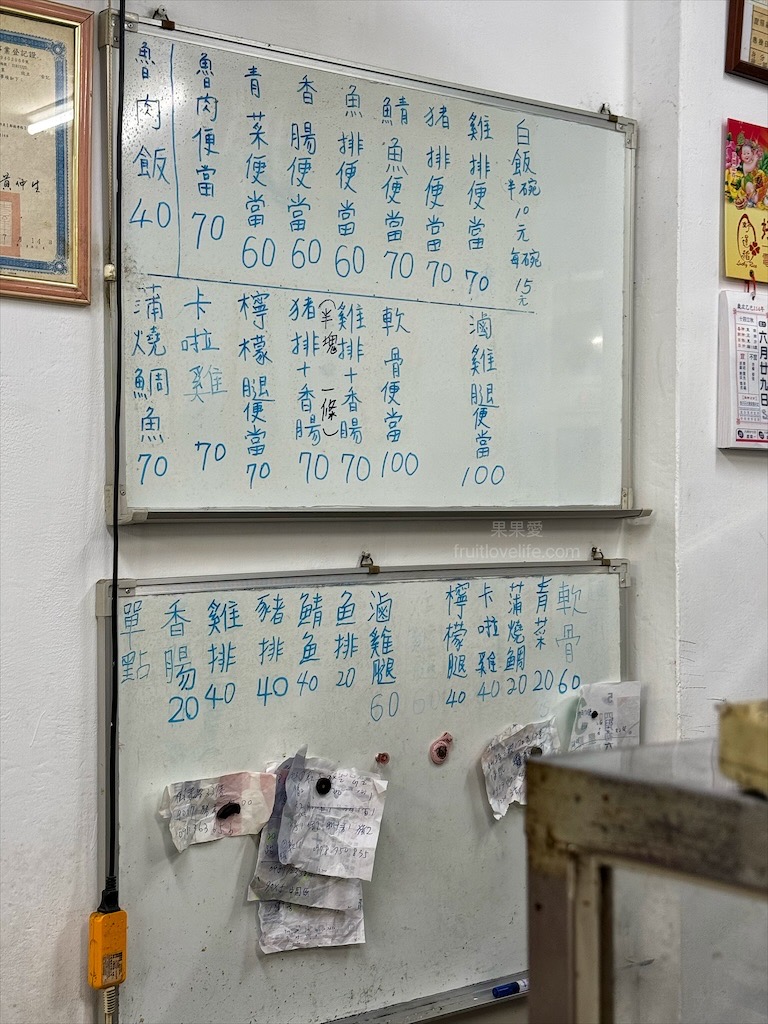 魯肉飯 40
魯肉便當 70
青菜便當 60
香腸便當 60
魚排便當 60
鯖魚便當 70
猪排便當 70
雞排便當 70
白飯 半碗10元 每碗15元
蒲燒鯛魚 70
卡啦雞 70
檸檬腿便當 70
猪排+香腸 70
(半塊 一條)
雞排+香腸 70
軟骨便當 100
滷雞腿便當 100
果果愛
fruitlovelife.com
單點
香腸 20
雞排 40
豬排 40
鯖鱼 40
鱼排 20
滷雞腿 60
檸檬腿 40
卡啦雞 40
蒲燒鯛 20
青菜 20
軟骨 60
六月廿九日